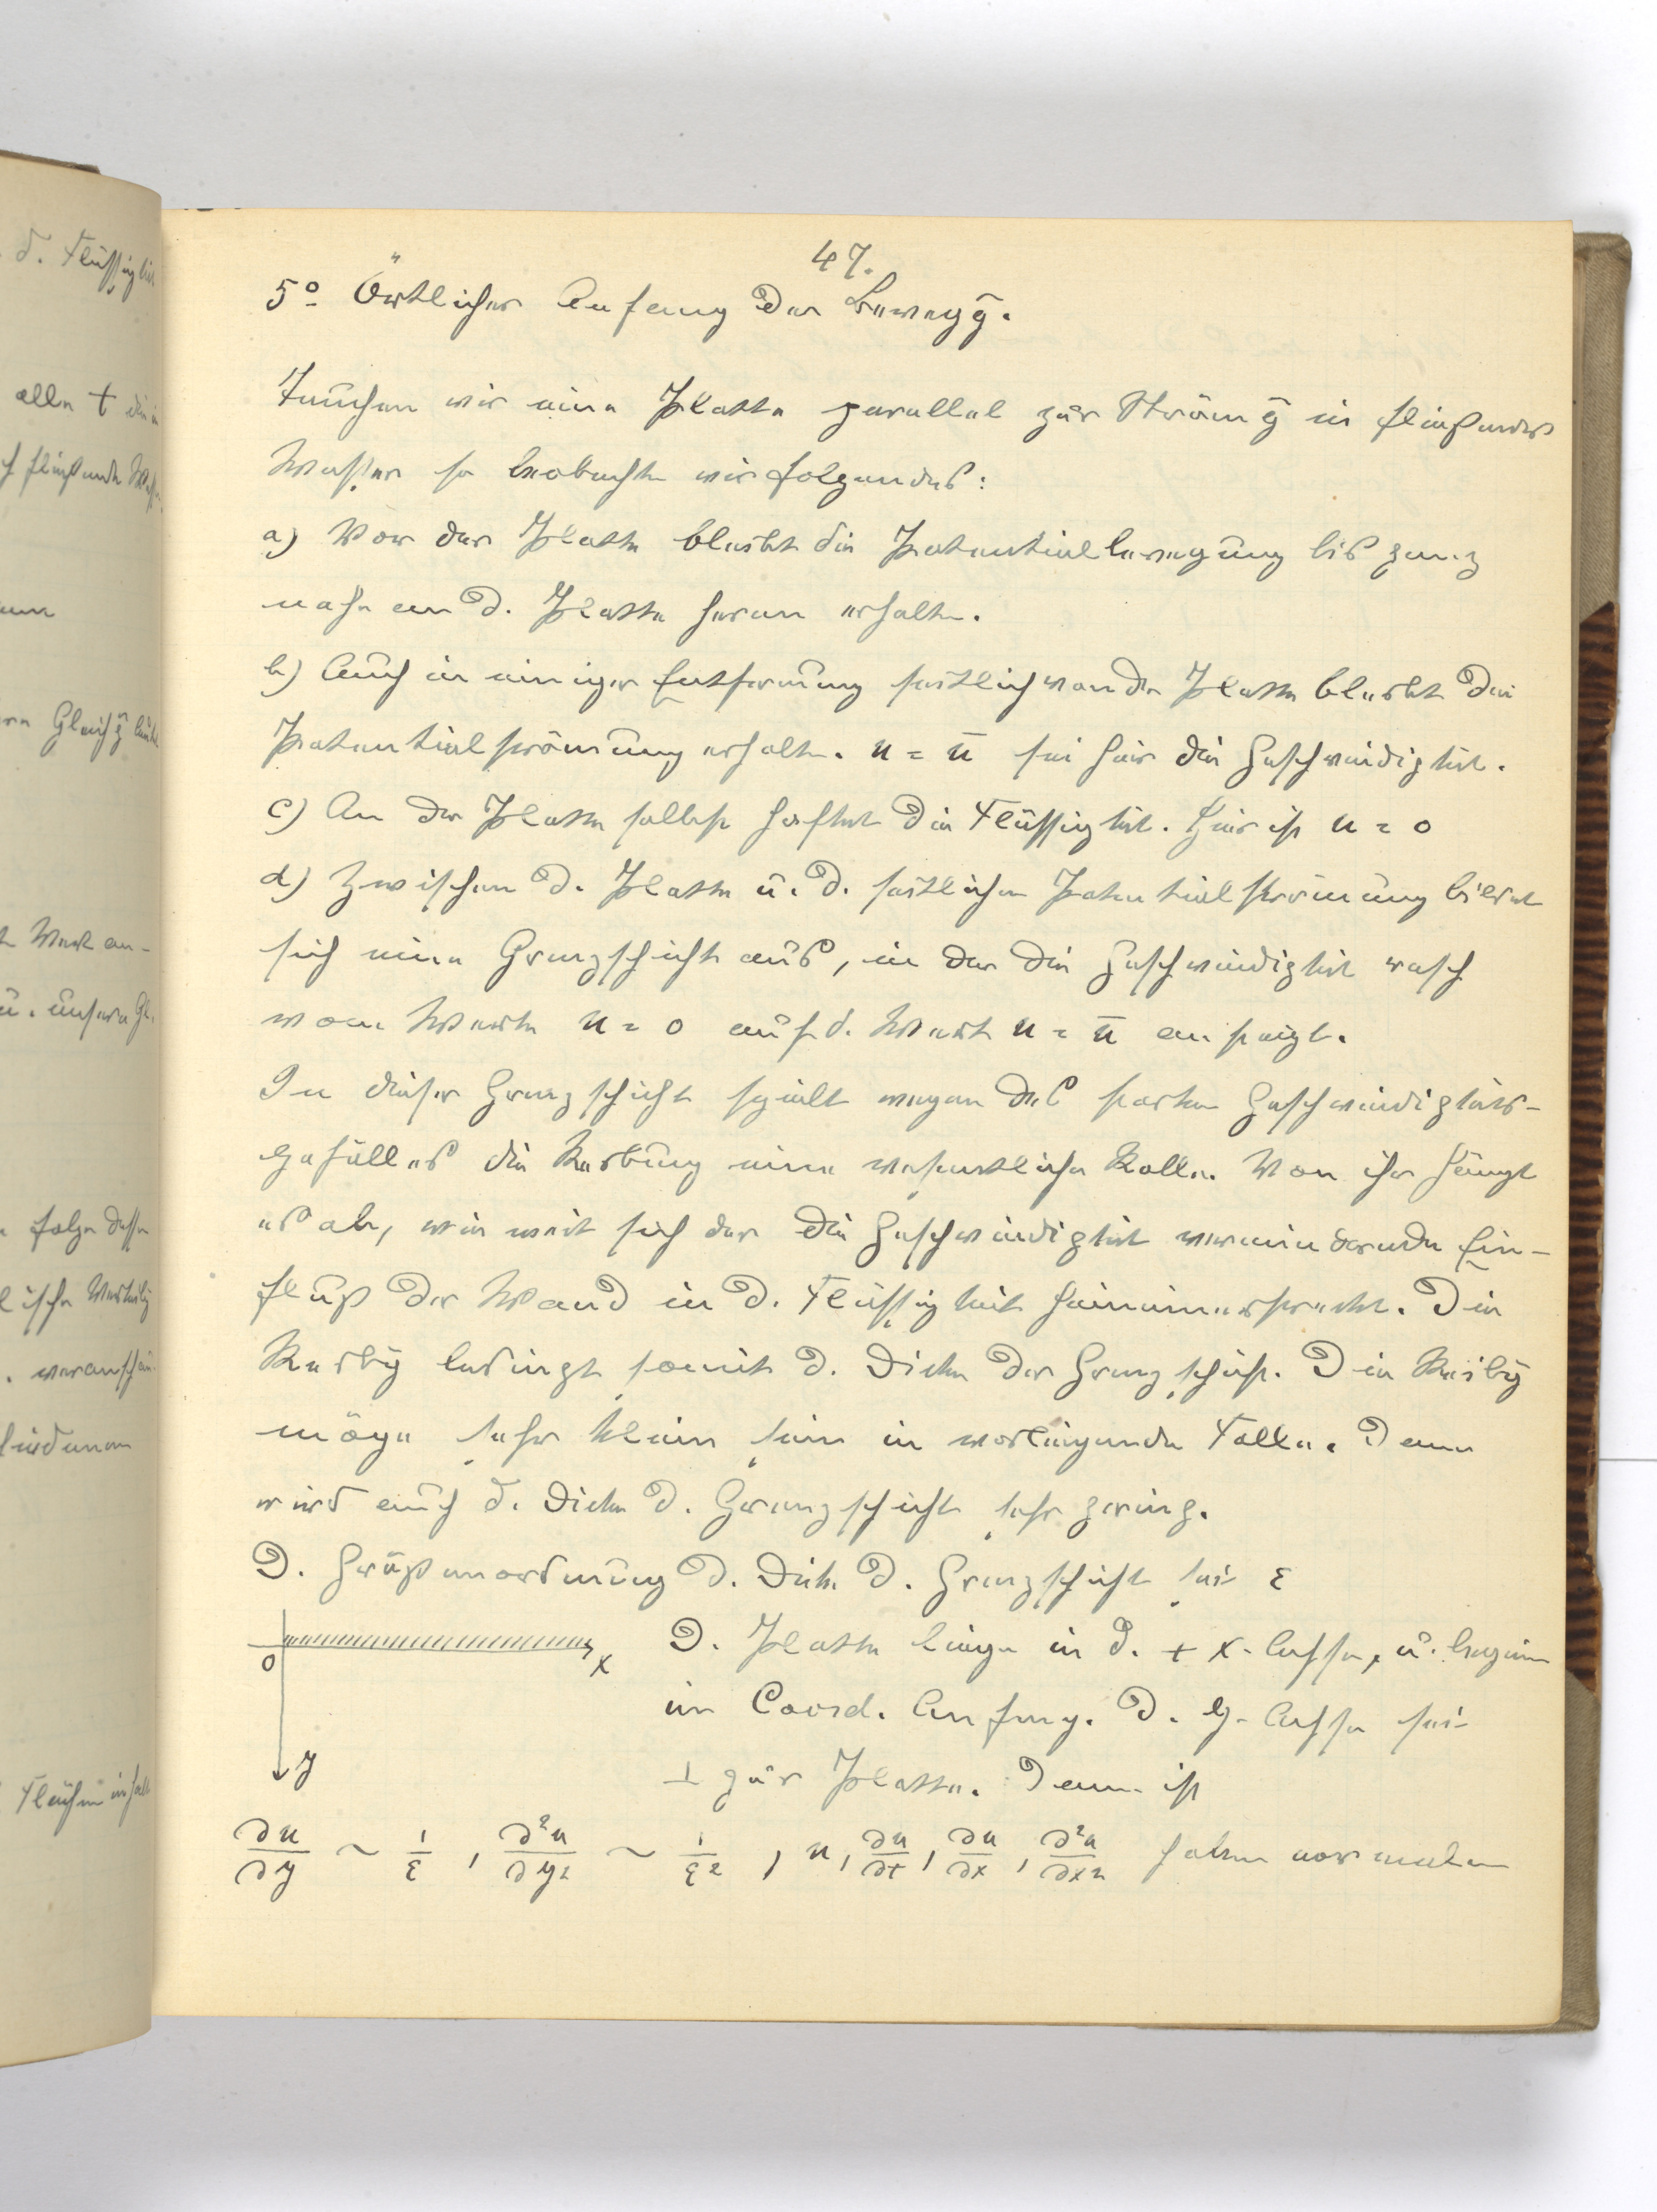 d. Flüssigkeit
alle t die in
fließende Wasser
Gleichg
Wert an-
u. unsere Gl.
folge dessen
ische Verteilg
. veranschau-
Flächeninhalt
47.
5º Örtlicher Anfang der Bewegg.
Tauchen wir eine Platte parallel zur Strömg in fließendes
Wasser so beobachten wir folgendes:
a) Vor der Platte bleibt die Potentialbewegung bis ganz
nahe an d. Platte heran erhalten.
b) Auch in einiger Entfernung seitlich von der Platte bleibt die
Potentialströmung erhalten. u = ū sei hier die Geschwindigkeit.
c) An der Platte selbst haftet die Flüssigkeit. Hier ist u = 0
d) Zwischen d. Platte u. d. seitlichen Potentialströmung bildet
sich eine Grenzschicht aus, in der die Geschwindigkeit rasch
vom Werte u = 0 auf d. Wert u = ū ansteigt.
In dieser Grenzschicht spielt wegen des starken Geschwindigkeits-
gefälles die Reibung eine wesentliche Rolle. Von ihr hängt
es ab, wie weit sich der die Geschwindigkeit vermindernde Ein-
fluß der Wand in d. Flüssigkeit hineinerstreckt. Die
Reibg bedingt somit d. Dicke der Grenzschicht. Die Reibg
möge sehr klein sein in vorliegende Falle. Dann
wird auch d. Dicke d. Grenzschicht sehr gering.
D. Größenordnung d. Dicke d. Grenzschicht sei ε
0 x
y
D. Platte liege in d. + x-Achse, u. beginne
im Coord. Anfang. D. y-Achse sei
⊥ zur Platte. Dann ist
∂u/∂y ~ 1/ε , ∂²u/∂y² ~ 1/ε² , u, ∂u/∂t, ∂u/∂x, ∂²u/∂x² haben normalen